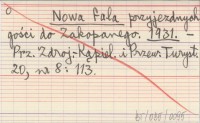 Nowa fala przyjezdnych
gości do Zakopanego. 1931. –
Prz. Zdroj.-Kąpiel. i Przew. Turyst.
20, na 8: 113.